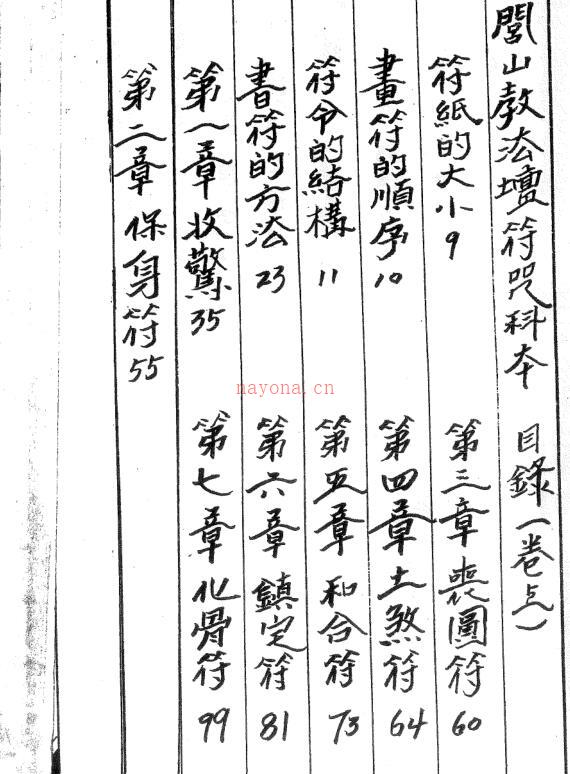 閭山教法壇符咒科本 目錄（卷上）
符紙的大小9
畫符的順序10
符令的結構11
書符的方法23
第一章收驚35
第二章 保身符55
第三章 喪圖符60
第四章 土煞符64
第五章 和合符73
第六章 鎮定符81
第七章 化骨符99
nayona.cn